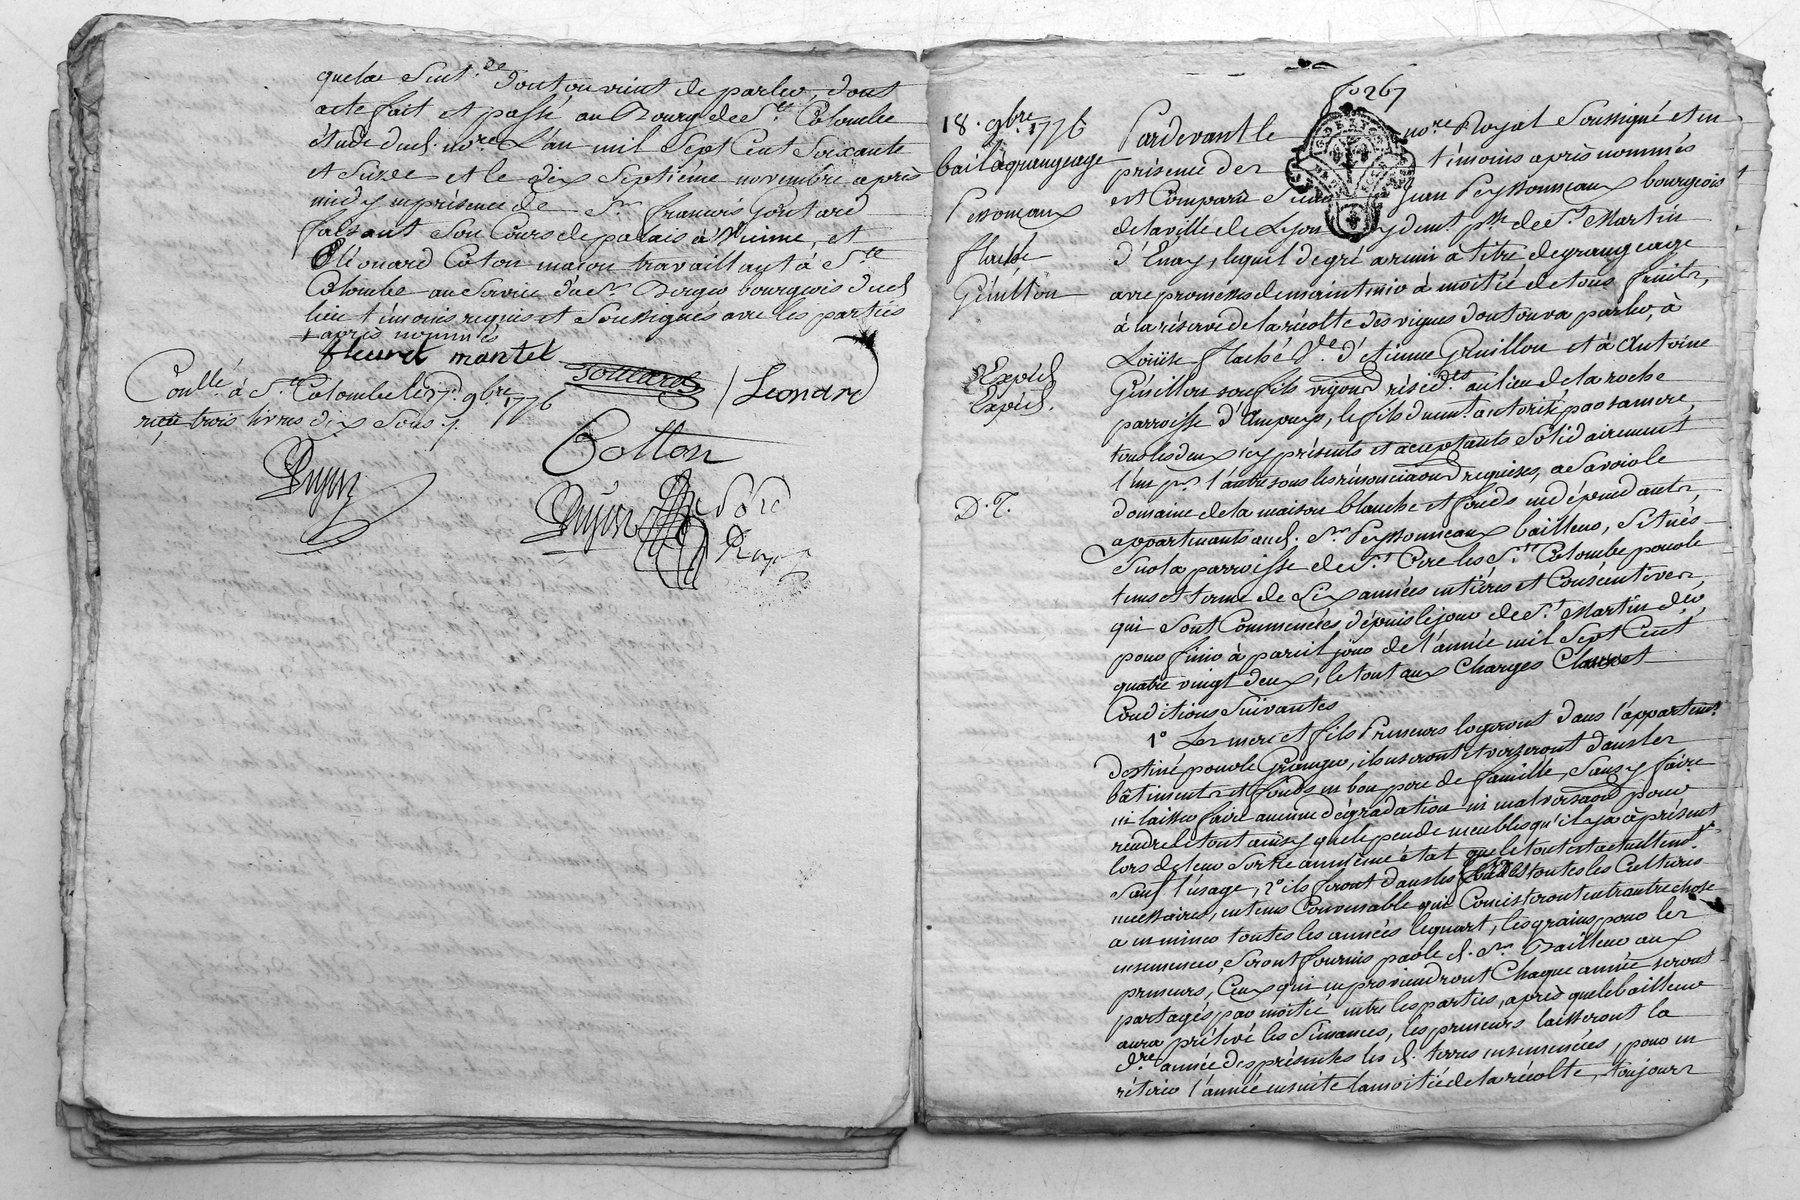 que la Suit. de dont on vient de parler, dont
acte fait et passé au Bourg de Ste. Colombe
étude dud. nore. L'an mil Sept Cent Soixante
et Seize et le dix Septième novembre après
midy en présence de Sr. francois Goutard
faisant Son Cours de palais à Vienne, et
Léonard Coton macon travaillant à Ste.
Colombe au Service du Sr. Berger bourgeois dud.
lieu témoins requis et Soussignés avec les parties
+ après nommés
fleurd mantel
Goutard
Leonard
Conllé. à Ste. Colombe le 17e. 9bre. 1776
reçu trois livres dix Sous
Cotton
fo 267
18. 9bre. 1776
bail à grangeage
Peronneaux
flaché
Genillon
Expéd.
Expéd.
D. T.
Pardevant le nore. Royal Soussigné et en
présence des témoins après nommés
est Comparu Sieur Jean Peyssonneaux bourgeois
de la ville de Lyon y demt. psse. de St. Martin
d'Enay, lequel de gré a remis à titre de grangeage
avec promesses de maintenir à moitié de tous fruits,
à la réserve de la récolte des vignes dont on va parler, à
Louise flaché Vve. d'etienne Genillon et à Antoine
Genillon son fils vigneron résidts. au lieu de la roche
parroisse d'Ampuys, le fils duemt. autorisé par sa mere,
tous les deux icy présents et acceptants Solidairement
l'un pr. l'autre sous les rénonciaons requises, a Savoir le
domaine de la maison blanche et fonds en dépendants,
appartenants aud. Sr. Peyssonneaux bailleur, Situés
Sur la parroisse de St. Cire les Ste. Colombe pour le
tems et terme de Six années entières et Consécutives
qui Sont Commencées dépuis le jour de St. Martin der.
pour finir à pareil jour de l'année mil Sept Cent
quatre vingt deux, le tout aux Charges Clauses et
Conditions Suivantes
1o Les mere et fils Preneurs logeront dans l'appartemt.
destiné pour le Granger, ils useront et verseront dans les
bâtiments et fonds en bon pere de famille, Sans y faire
ni laisser faire aucune dégradation ni malversaon pour
rendre le tout ainsy que le peu de meubles qu'il y a à présent
lors de leur Sortie au même état que le tout est actuellemt.
Sauf l'usage, 2o ils feront dans les fonds toutes les Cultures
nécessaires, en tems Convenable qui Consisteront entr'autre chose
a en miner toutes les années le quart, les grains pour les
ensemencer, Seront fournis par le d. Sr. Bailleur aux
preneurs, Ceux qui en proviendront Chaque année seront
partagés par moitié entre les parties, après que le bailleur
aura prélévé les Semances, les preneurs laisseront la
dre. année des présentes les d. terres ensemencées, pour en
rétirer l'année ensuite la moitié de la récolte, toujours